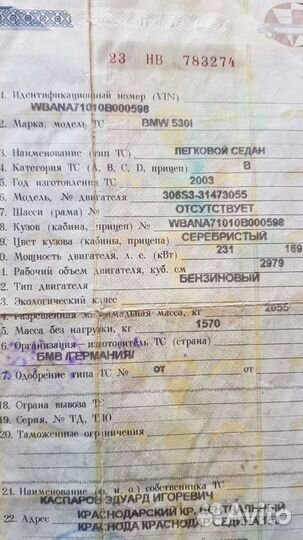 23 НВ 783274
1. Идентификационный номер (VIN)
WBANA71010B000598
2. Марка, модель ТС BMW 530I
3. Наименование (тип ТС) ЛЕГКОВОЙ СЕДАН
4. Категория ТС (А, В, С, D, прицеп) В
5. Год изготовления ТС 2003
6. Модель, № двигателя 306S3-31473055
7. Шасси (рама) № ОТСУТСТВУЕТ
8. Кузов (кабина, прицеп) № WBANA71010B000598
9. Цвет кузова (кабины, прицепа) СЕРЕБРИСТЫЙ
0. Мощность двигателя, л. с. (кВт) 231 169
1. Рабочий объем двигателя, куб. см 2979
2. Тип двигателя БЕНЗИНОВЫЙ
3. Экологический класс
4. Разрешенная максимальная масса, кг 2055
5. Масса без нагрузки, кг 1570
6. Организация - изготовитель ТС (страна)
БМВ /ГЕРМАНИЯ/
17. Одобрение типа ТС № от от
18. Страна вывоза ТС
19. Серия, № ТД, ТПО
20. Таможенные ограничения
21. Наименование (ф. и. о.) собственника ТС
КАСПАРОВ ЭДУАРД ИГОРЕВИЧ
22. Адрес КРАСНОДАРСКИЙ КР. ЦЕНТРАЛЬНЫЙ
КРАСНОДА КРАСНОДАР СЕДИНА
Avito